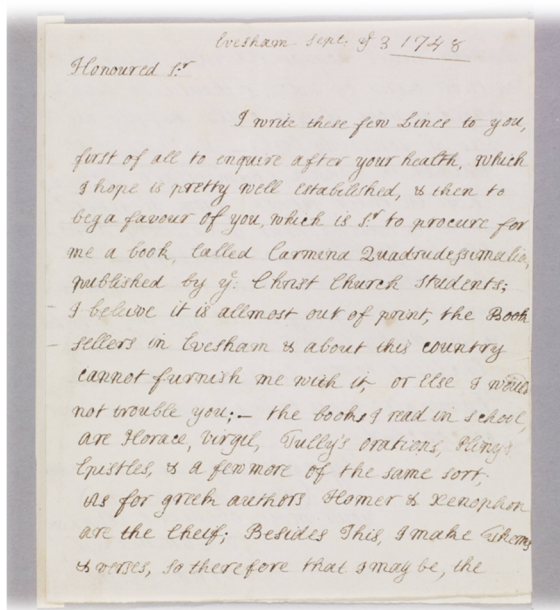 Evesham Sept. ye 3 1748
Honoured Sr
I write these few Lines to you,
first of all to enquire after your health, which
I hope is pretty well estabilished, & then to
beg a favour of you, which is Sr to procure for
me a book, Called Carmina Quadrudessimalia,
published by ye Christ Church Students;
I beleive it is allmost out of print, the Book
sellers in Evesham & about this country
cannot furnish me with it, or Else I would
not trouble you; – the books I read in school,
are Horace, Virgil, Tully's orations, Pliny's
Epistles, & a few more of the same sort,
As for greek authors Homer & Xenophon
are the Cheif; Besides This, I make Thems
& verses, so therefore that I may be, the